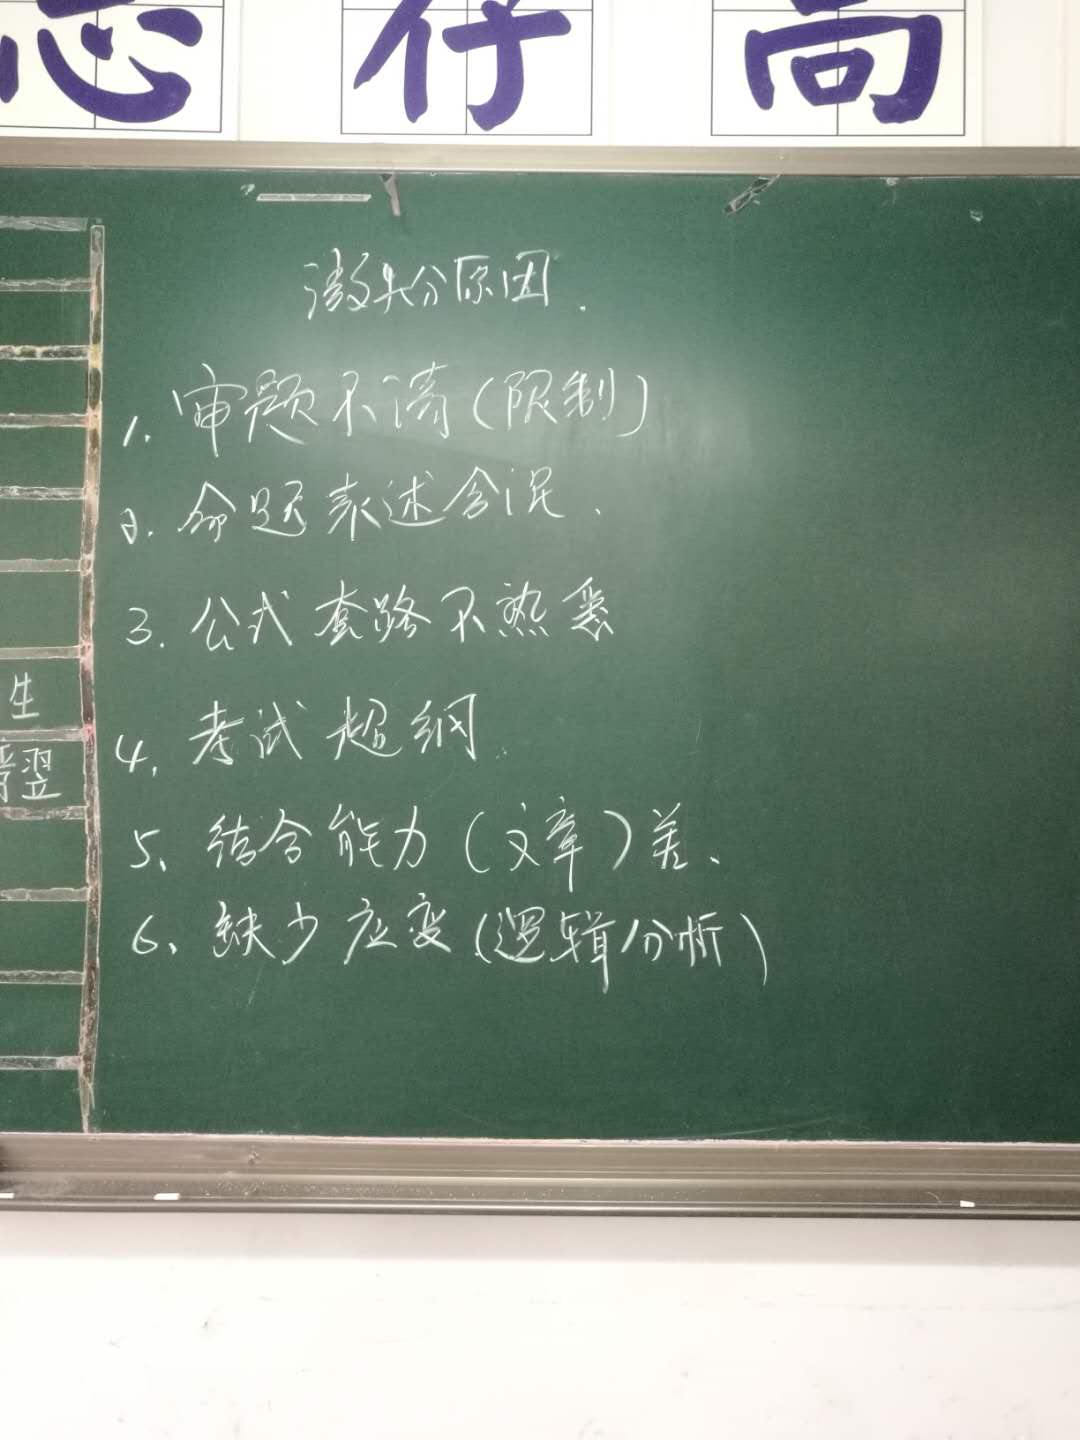 志存高
失分原因.
1. 审题不清(限制)
2. 命题表述含混.
3. 公式套路不熟悉
4. 考试超纲.
5、结合能力(文章)差、
6、缺少应变(逻辑分析)
生
翌